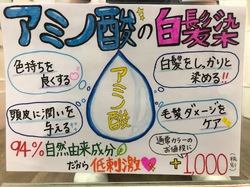 アミノ酸の白髪染
色持ちを
良くする
白髪をしっかりと
染める!!
アミノ酸
頭皮に潤いを
与える
毛髪ダメージを
ケア
94%自然由来成分
だから低刺激
通常カラーの
お値段に
+1,000(税別)